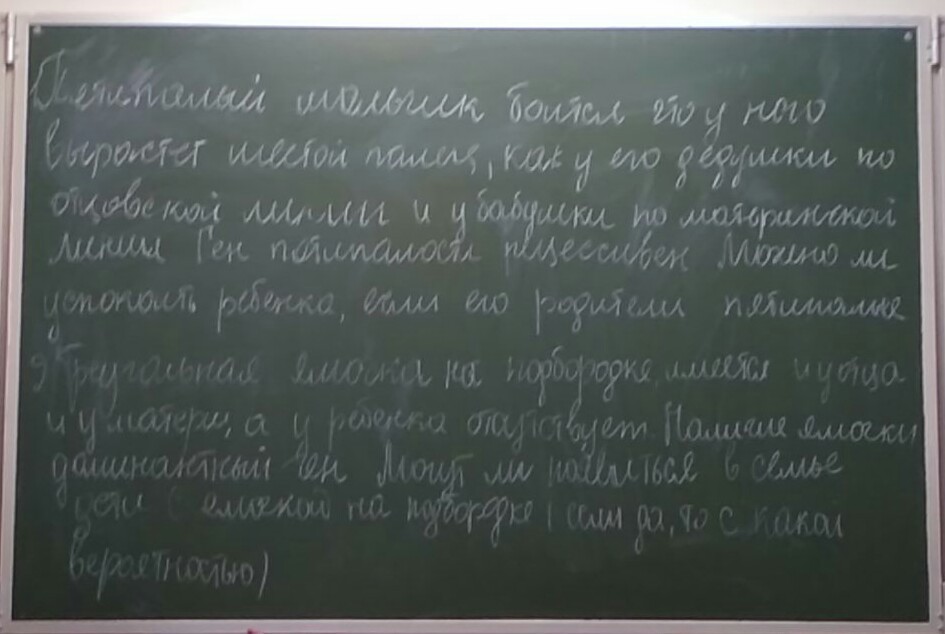 Пятипалый мальчик боится что у него
вырастет шестой палец, как у его дедушки по
отцовской линии и у бабушки по материнской
линии Ген пятипалости рецессивен Можно ли
успокоить ребенка, если его родители пятипалые
Треугольная ямочка на подбородке имеется и у отца
и у матери, а у ребенка отсутствует. Наличие ямочки
доминантный ген Могут ли появиться в семье
дети с ямочкой на подбородке (если да, то с какой
вероятностью)